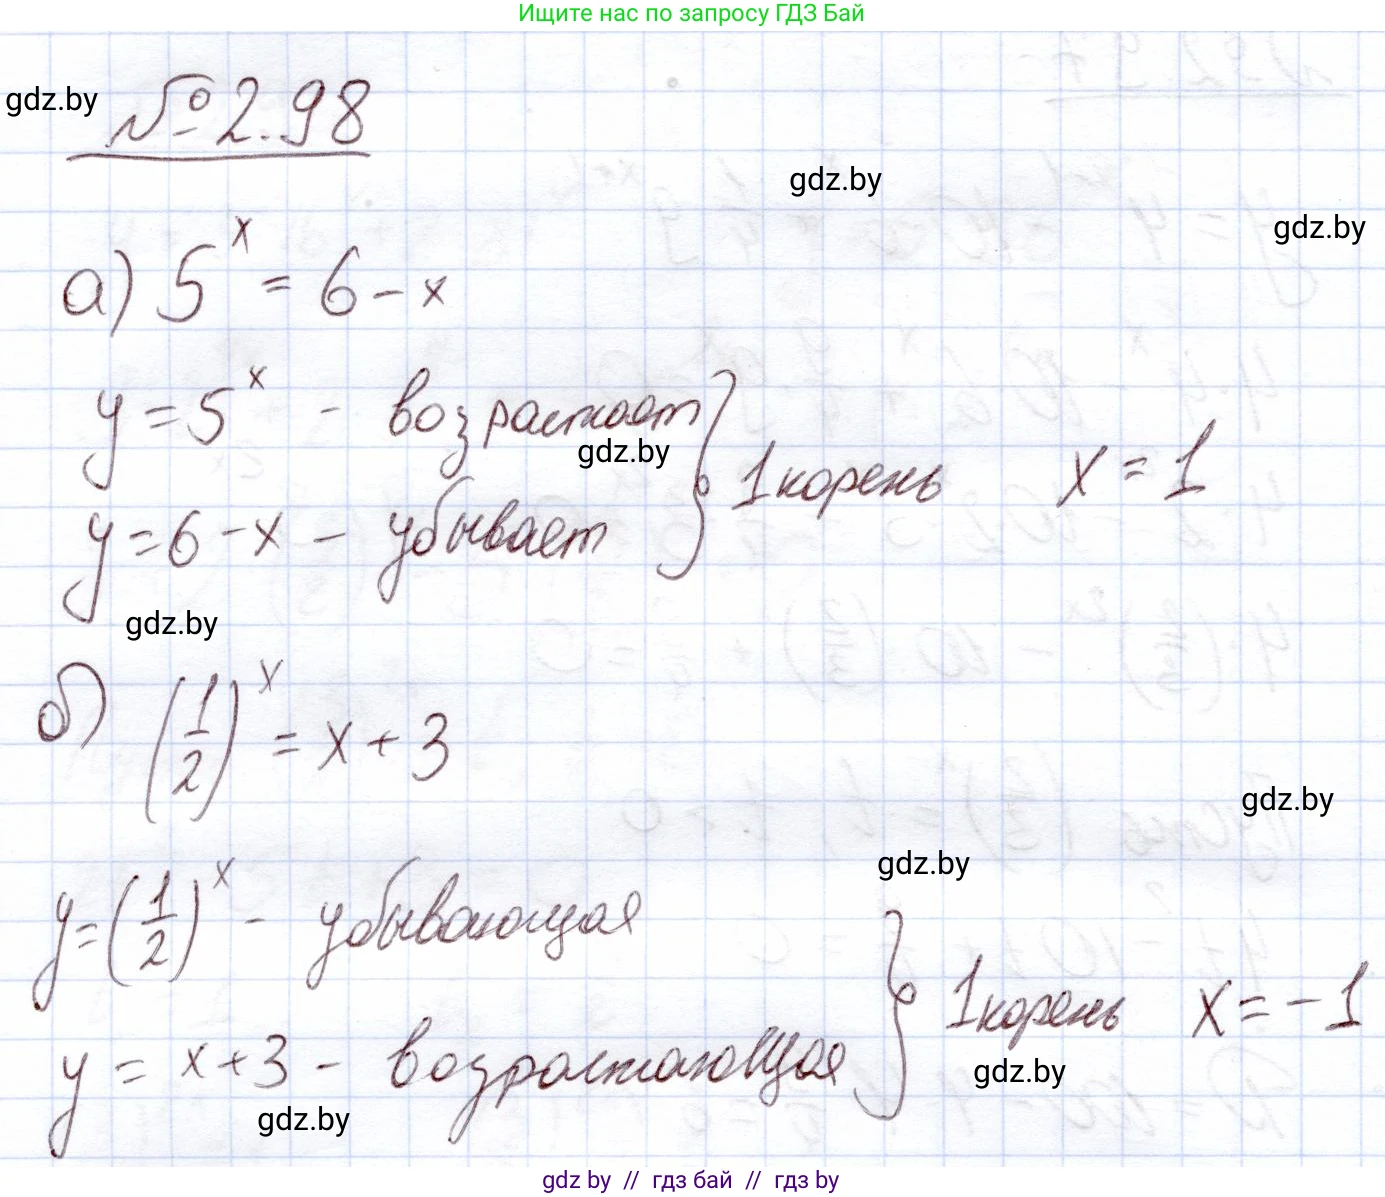 Ищите нас по запросу ГДЗ Бай
gdz.by
№2.98
gdz.by
gdz.by
а) 5^x = 6 - x
y = 5^x - возрастает
gdz.by
1 корень x = 1
y = 6 - x - убывает
gdz.by
б) (1/2)^x = x + 3
gdz.by
gdz.by
y = (1/2)^x - убывающая
1 корень x = -1
y = x + 3 - возрастающая
gdz.by
gdz.by
gdz by // гдз бай // гдз by